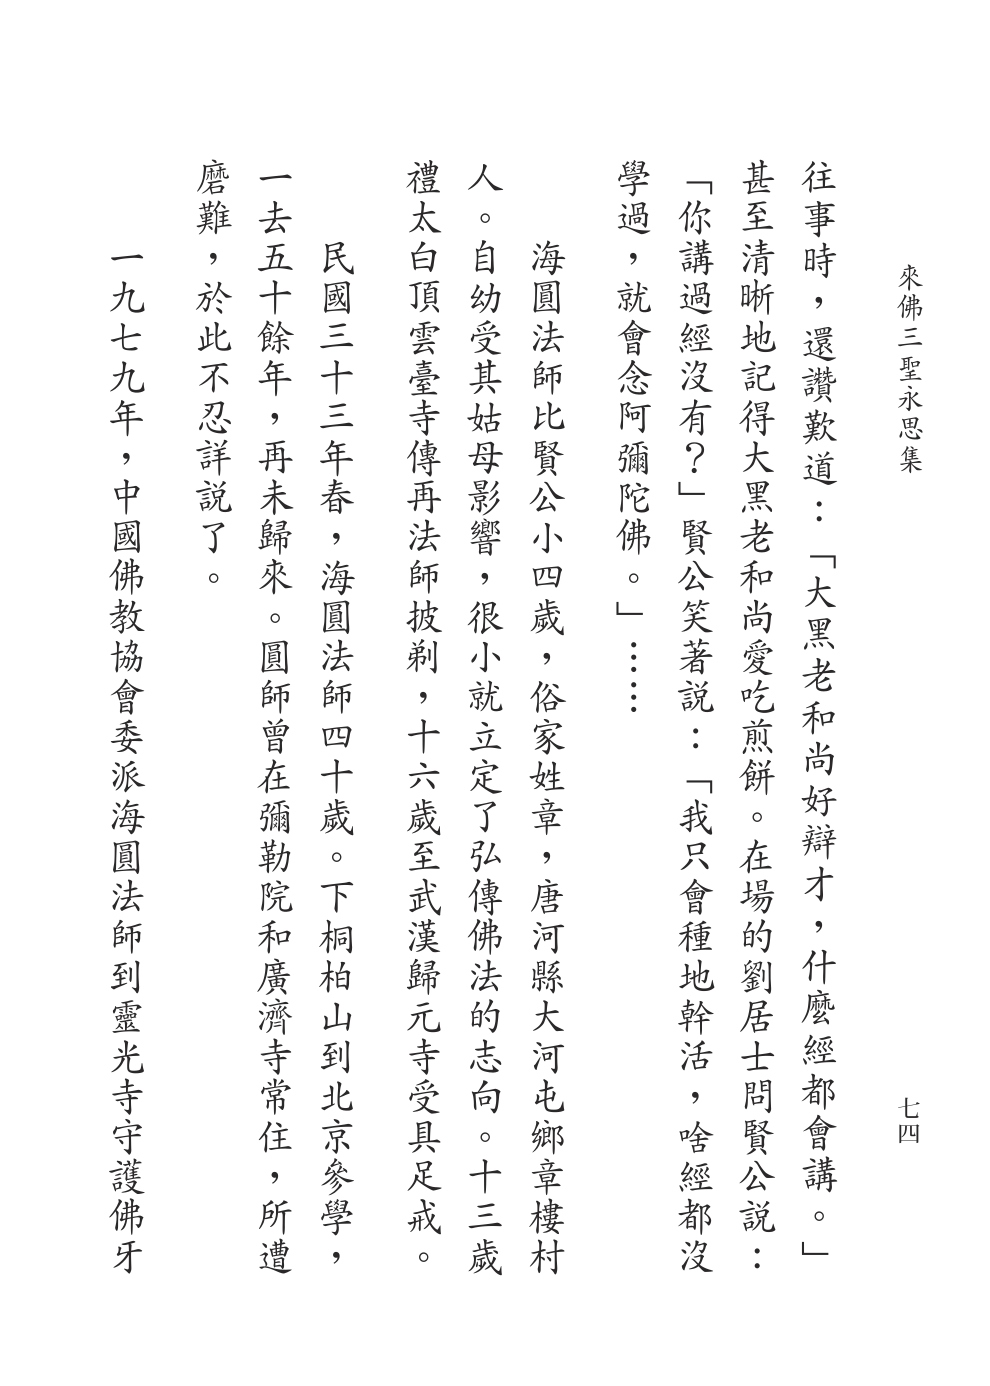 來佛三聖永思集
七四
往事時，還讚歎道：「大黑老和尚好辯才，什麼經都會講。」
甚至清晰地記得大黑老和尚愛吃煎餅。在場的劉居士問賢公説：
「你講過經沒有？」賢公笑著説：「我只會種地幹活，啥經都沒
學過，就會念阿彌陀佛。」……
海圓法師比賢公小四歲，俗家姓章，唐河縣大河屯鄉章樓村
人。自幼受其姑母影響，很小就立定了弘傳佛法的志向。十三歲
禮太白頂雲臺寺傳再法師披剃，十六歲至武漢歸元寺受具足戒。
民國三十三年春，海圓法師四十歲。下桐柏山到北京參學，
一去五十餘年，再未歸來。圓師曾在彌勒院和廣濟寺常住，所遭
磨難，於此不忍詳説了。
一九七九年，中國佛教協會委派海圓法師到靈光寺守護佛牙